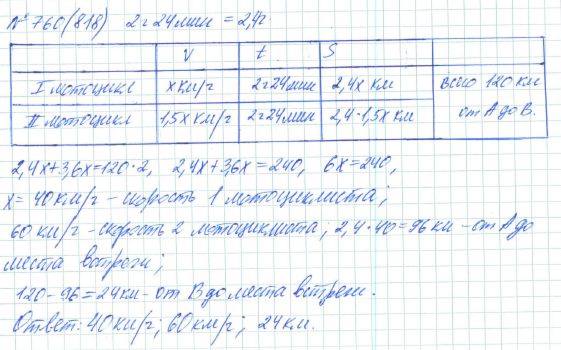 № 760(818) 2г24мин = 2,4г
V t S
I мотоцикл xкм/г 2г24мин 2,4x км всего 120км
II мотоцикл 1,5x км/г 2г24мин 2,4·1,5x км от А до В.
2,4x+3,6x=120·2, 2,4x+3,6x=240, 6x=240,
x=40км/г-скорость 1 мотоциклиста;
60км/г-скорость 2 мотоциклиста; 2,4·40=96км-от А до
места встречи;
120-96=24км-от В до места встречи.
Ответ: 40км/г; 60км/г; 24км.